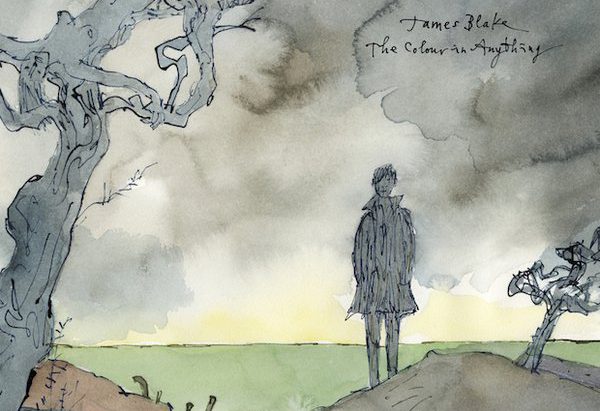 James Blake
The Colour in Anything